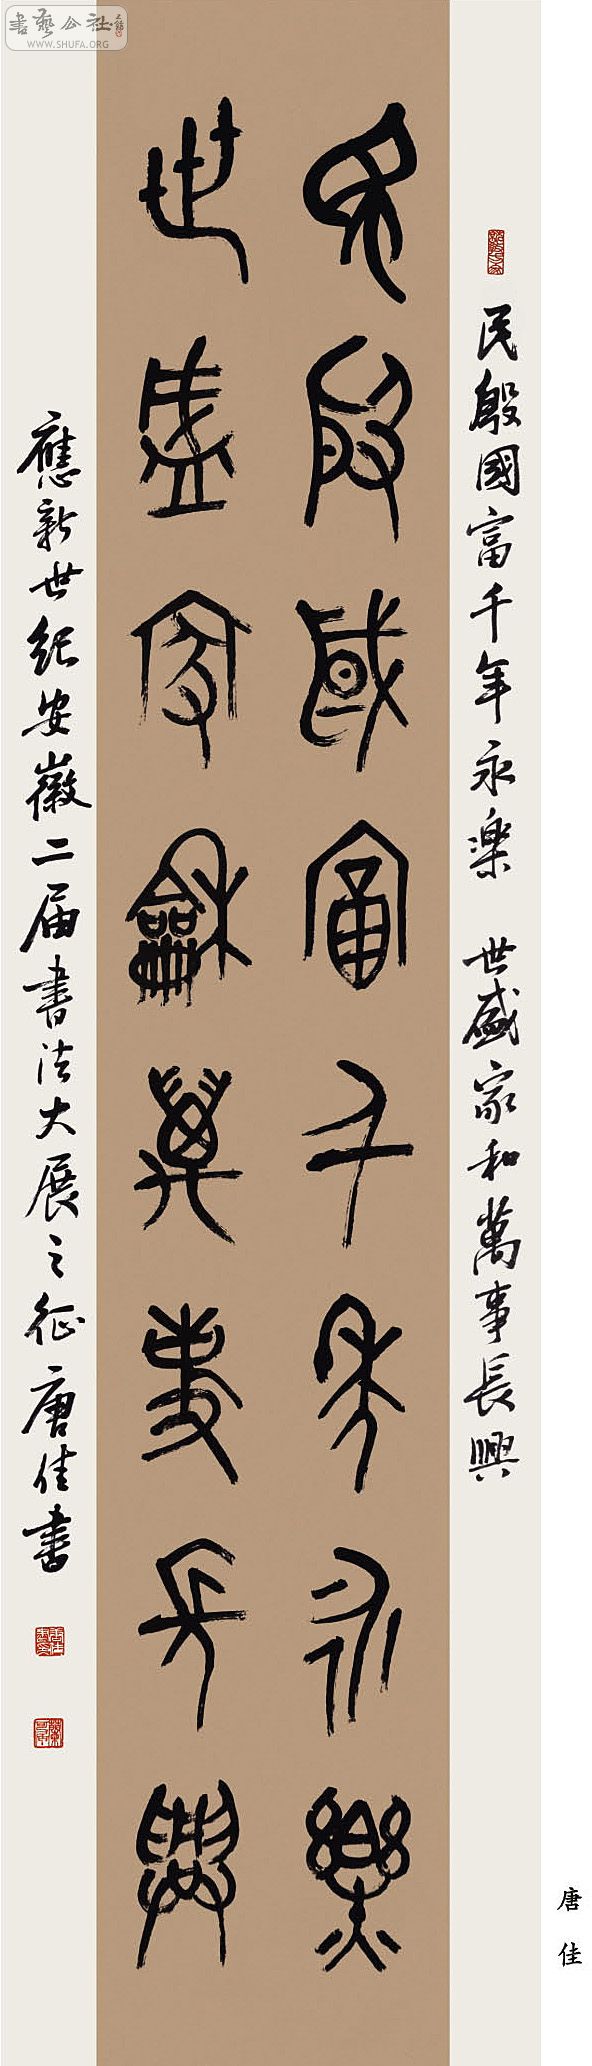 書藝公社
WWW.SHUFA.ORG
民殷國富千年永樂 世盛家和萬事長興
民殷國富千年永樂
世盛家和萬事長興
應新世紀安徽二届書法大展之征唐佳書
唐佳